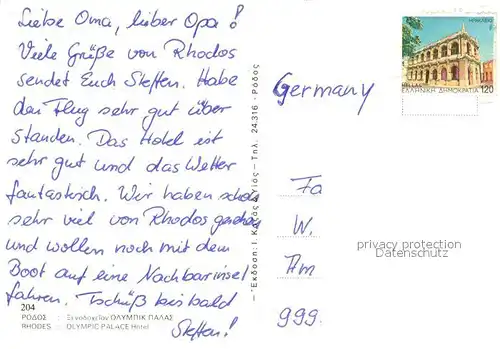 Liebe Oma, lieber Opa!
Viele Grüße von Rhodos
sendet Euch Steffen. Habe
den Flug sehr gut über
standen. Das Hotel ist
sehr gut und das Wetter
fantastisch. Wir haben schon
sehr viel von Rhodos gesehen
und wollen noch mit dem
Boot auf eine Nachbarinsel
fahren. Tschüß bis bald
Steffen!
204
ΡΟΔΟΣ : Ξενοδοχείον ΟΛΥΜΠΙΚ ΠΑΛΑΣ
RHODES : OLYMPIC PALACE Hotel
Τηλ. 24.316 - Ρόδος
ΕΛΛΗΝΙΚΗ ΔΗΜΟΚΡΑΤΙΑ 120
Germany
Fa
W.
Am
999.
privacy protection
Datenschutz